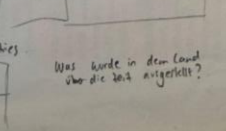 ies.
Was wurde in dem Land
über die Zeit ausgestellt?